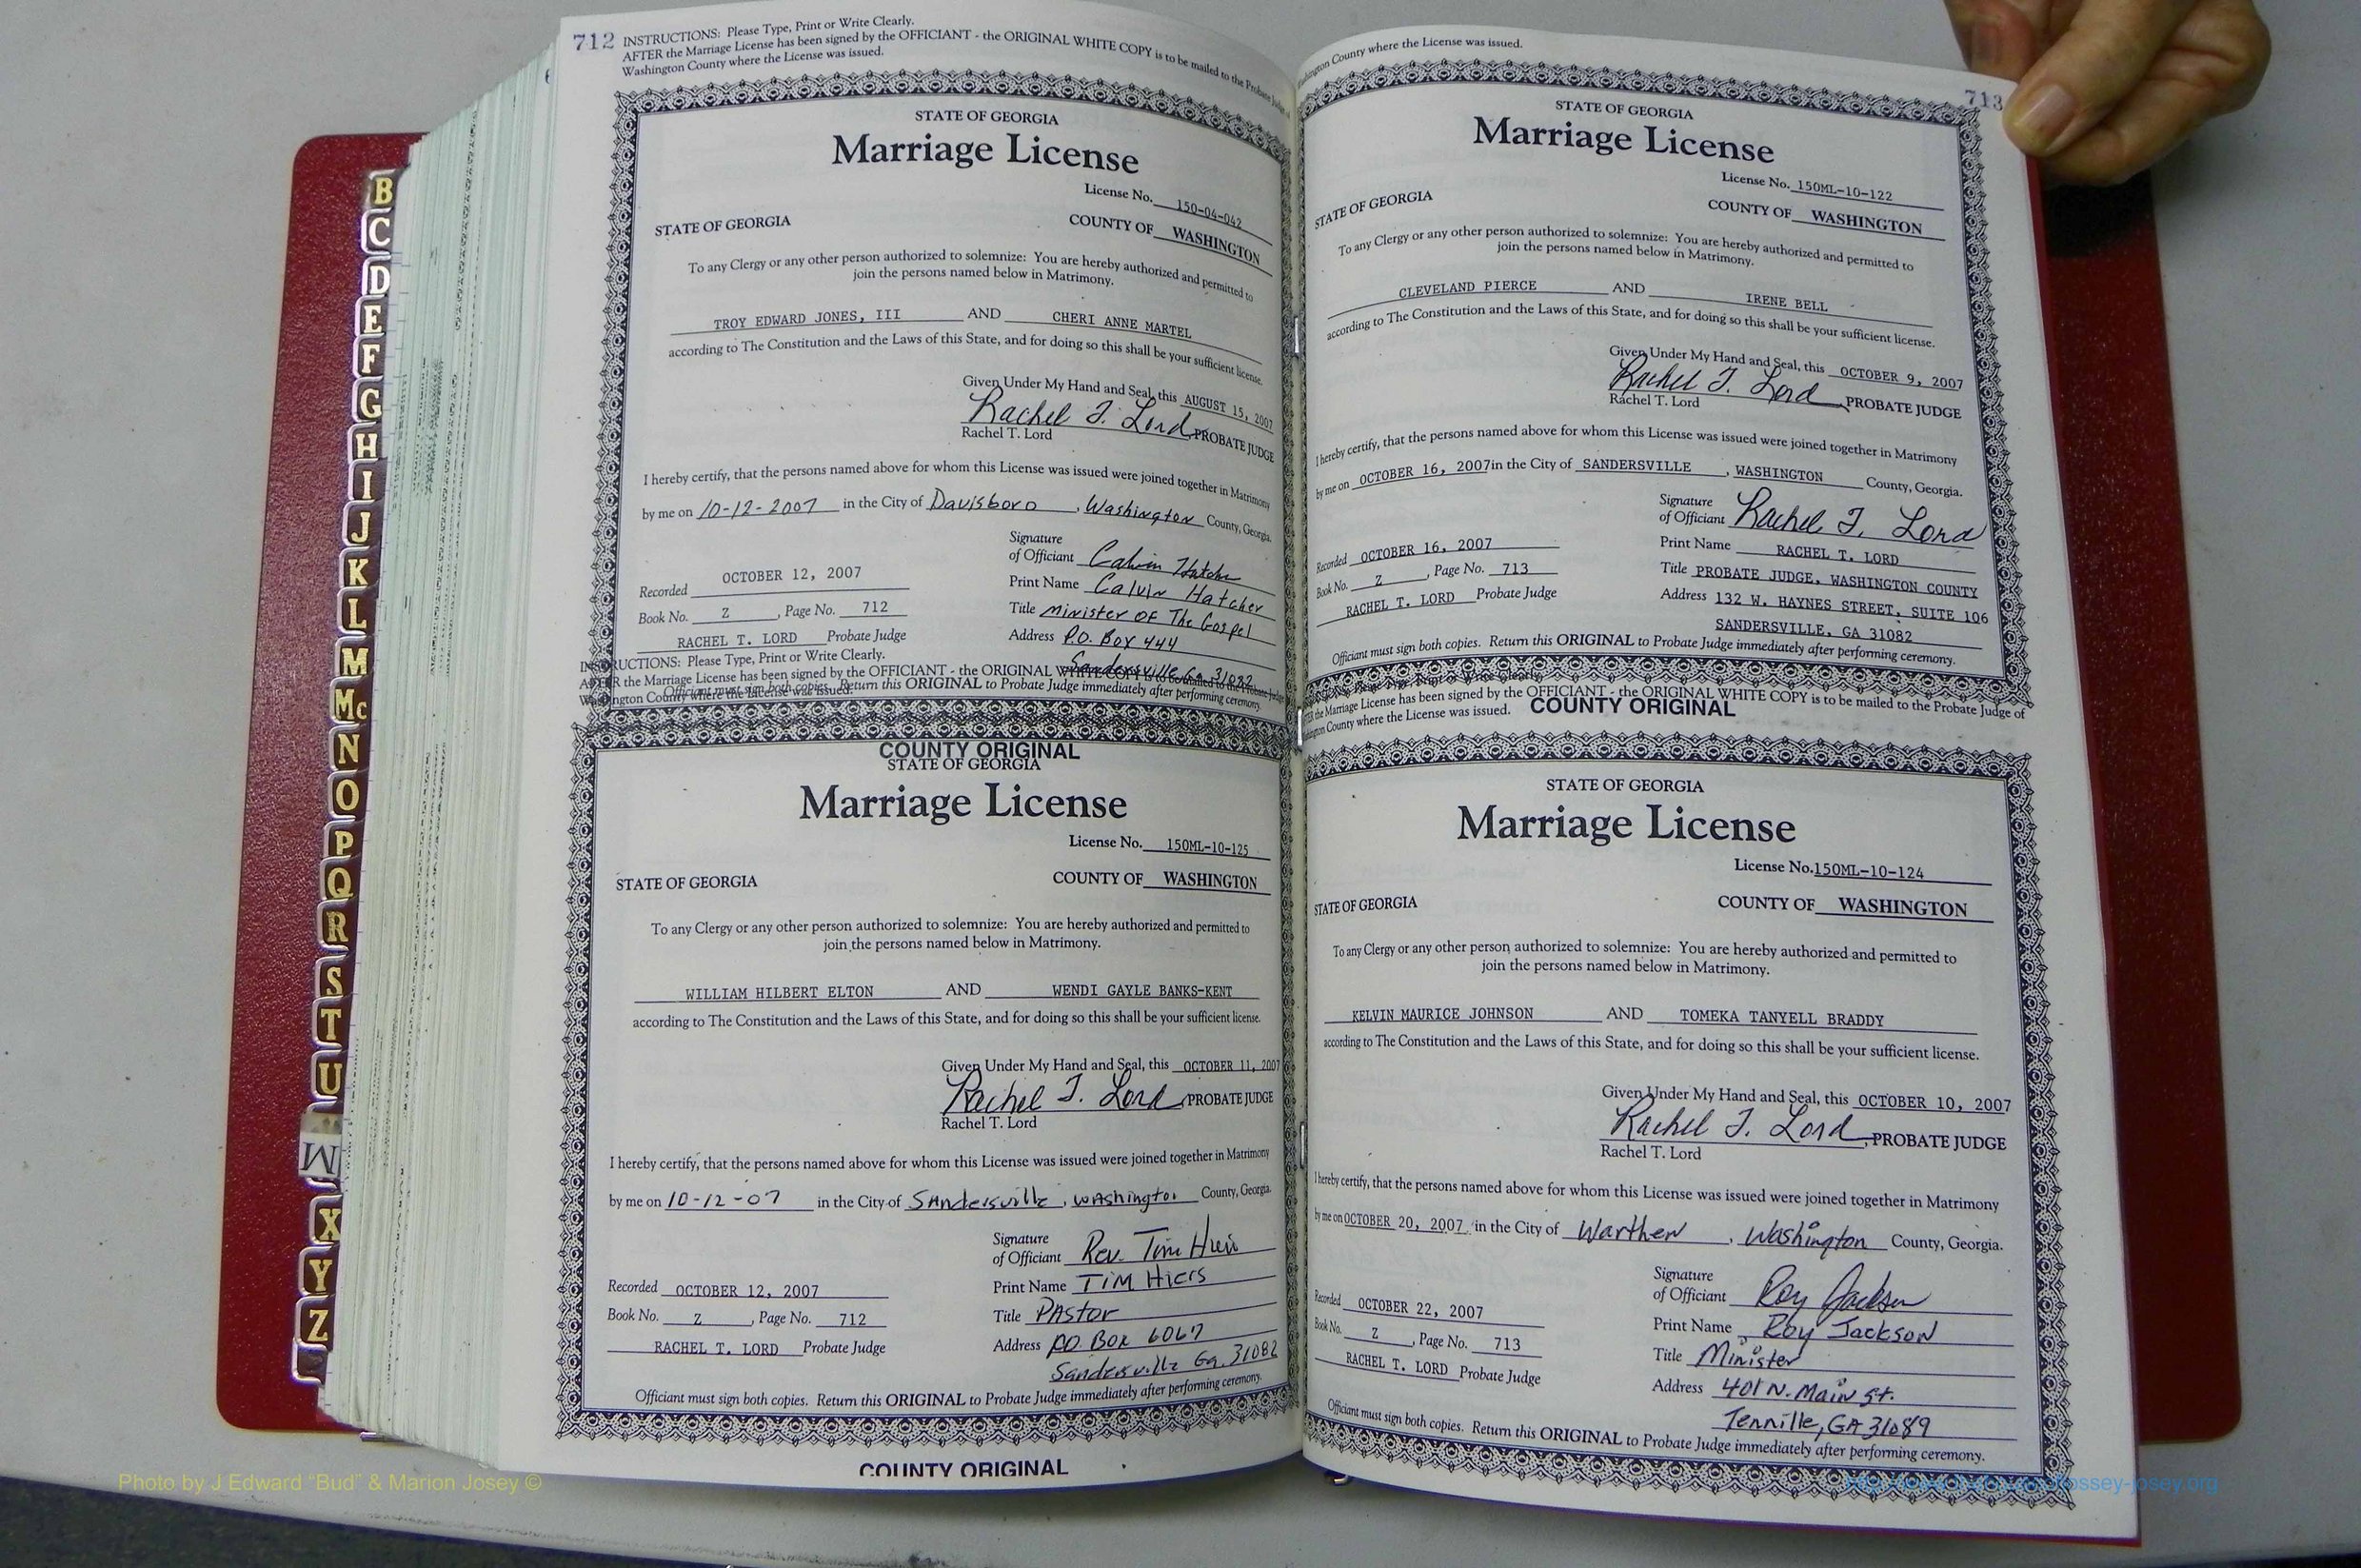 B
C
D
E
F
G
H
I
J
K
L
M
Mc
N
O
P
Q
R
S
T
U
X
Y
Z
712 INSTRUCTIONS: Please Type, Print or Write Clearly.
AFTER the Marriage License has been signed by the OFFICIANT - the ORIGINAL WHITE COPY is to be mailed to the Probate
Washington County where the License was issued.
STATE OF GEORGIA
Marriage License
License No. 150-04-042
STATE OF GEORGIA COUNTY OF WASHINGTON
To any Clergy or any other person authorized to solemnize: You are hereby authorized and permitted to
join the persons named below in Matrimony.
TROY EDWARD JONES, III AND CHERI ANNE MARTEL
according to The Constitution and the Laws of this State, and for doing so this shall be your sufficient license.
Given Under My Hand and Seal, this AUGUST 15, 2007
Rachel T. Lord PROBATE JUDGE
Rachel T. Lord
I hereby certify, that the persons named above for whom this License was issued were joined together in Matrimony
by me on 10-12-2007 in the City of Davisboro , Washington County, Georgia.
Signature
of Officiant Calvin Hatcher
Recorded OCTOBER 12, 2007 Print Name Calvin Hatcher
Book No. Z , Page No. 712 Title Minister OF The Gospel
RACHEL T. LORD Probate Judge Address P.O. Box 444
Sandersville Ga 31082
Officiant must sign both copies. Return this ORIGINAL to Probate Judge immediately after performing ceremony.
INSTRUCTIONS: Please Type, Print or Write Clearly.
AFTER the Marriage License has been signed by the OFFICIANT - the ORIGINAL WHITE COPY is to be mailed to the Probate Judge
Washington County where the License was issued.
COUNTY ORIGINAL
STATE OF GEORGIA
Marriage License
License No. 150ML-10-125
STATE OF GEORGIA COUNTY OF WASHINGTON
To any Clergy or any other person authorized to solemnize: You are hereby authorized and permitted to
join the persons named below in Matrimony.
WILLIAM HILBERT ELTON AND WENDI GAYLE BANKS-KENT
according to The Constitution and the Laws of this State, and for doing so this shall be your sufficient license.
Given Under My Hand and Seal, this OCTOBER 11, 2007
Rachel T. Lord PROBATE JUDGE
Rachel T. Lord
I hereby certify, that the persons named above for whom this License was issued were joined together in Matrimony
by me on 10-12-07 in the City of SAndersville , WAshington County, Georgia.
Signature
of Officiant Rev. Tim Hiers
Recorded OCTOBER 12, 2007 Print Name TIM HIERS
Book No. Z , Page No. 712 Title PAstor
RACHEL T. LORD Probate Judge Address P.O. Box 6067
Sandersville Ga. 31082
Officiant must sign both copies. Return this ORIGINAL to Probate Judge immediately after performing ceremony.
COUNTY ORIGINAL
Washington County where the License was issued.
713
STATE OF GEORGIA
Marriage License
License No. 150ML-10-122
STATE OF GEORGIA COUNTY OF WASHINGTON
To any Clergy or any other person authorized to solemnize: You are hereby authorized and permitted to
join the persons named below in Matrimony.
CLEVELAND PIERCE AND IRENE BELL
according to The Constitution and the Laws of this State, and for doing so this shall be your sufficient license.
Given Under My Hand and Seal, this OCTOBER 9, 2007
Rachel T. Lord , PROBATE JUDGE
Rachel T. Lord
I hereby certify, that the persons named above for whom this License was issued were joined together in Matrimony
by me on OCTOBER 16, 2007 in the City of SANDERSVILLE , WASHINGTON County, Georgia.
Signature
of Officiant Rachel T. Lord
Recorded OCTOBER 16, 2007 Print Name RACHEL T. LORD
Book No. Z , Page No. 713 Title PROBATE JUDGE, WASHINGTON COUNTY
RACHEL T. LORD Probate Judge Address 132 W. HAYNES STREET, SUITE 106
SANDERSVILLE, GA 31082
Officiant must sign both copies. Return this ORIGINAL to Probate Judge immediately after performing ceremony.
AFTER the Marriage License has been signed by the OFFICIANT - the ORIGINAL WHITE COPY is to be mailed to the Probate Judge of
Washington County where the License was issued. COUNTY ORIGINAL
STATE OF GEORGIA
Marriage License
License No. 150ML-10-124
STATE OF GEORGIA COUNTY OF WASHINGTON
To any Clergy or any other person authorized to solemnize: You are hereby authorized and permitted to
join the persons named below in Matrimony.
KELVIN MAURICE JOHNSON AND TOMEKA TANYELL BRADDY
according to The Constitution and the Laws of this State, and for doing so this shall be your sufficient license.
Given Under My Hand and Seal, this OCTOBER 10, 2007
Rachel T. Lord , PROBATE JUDGE
Rachel T. Lord
I hereby certify, that the persons named above for whom this License was issued were joined together in Matrimony
by me on OCTOBER 20, 2007 in the City of Warthen , Washington County, Georgia.
Signature
of Officiant Roy Jackson
Recorded OCTOBER 22, 2007 Print Name Roy Jackson
Book No. Z , Page No. 713 Title Minister
RACHEL T. LORD Probate Judge Address 401 N. Main St.
Tennille, GA 31089
Officiant must sign both copies. Return this ORIGINAL to Probate Judge immediately after performing ceremony.
Photo by J Edward “Bud” & Marion Josey ©